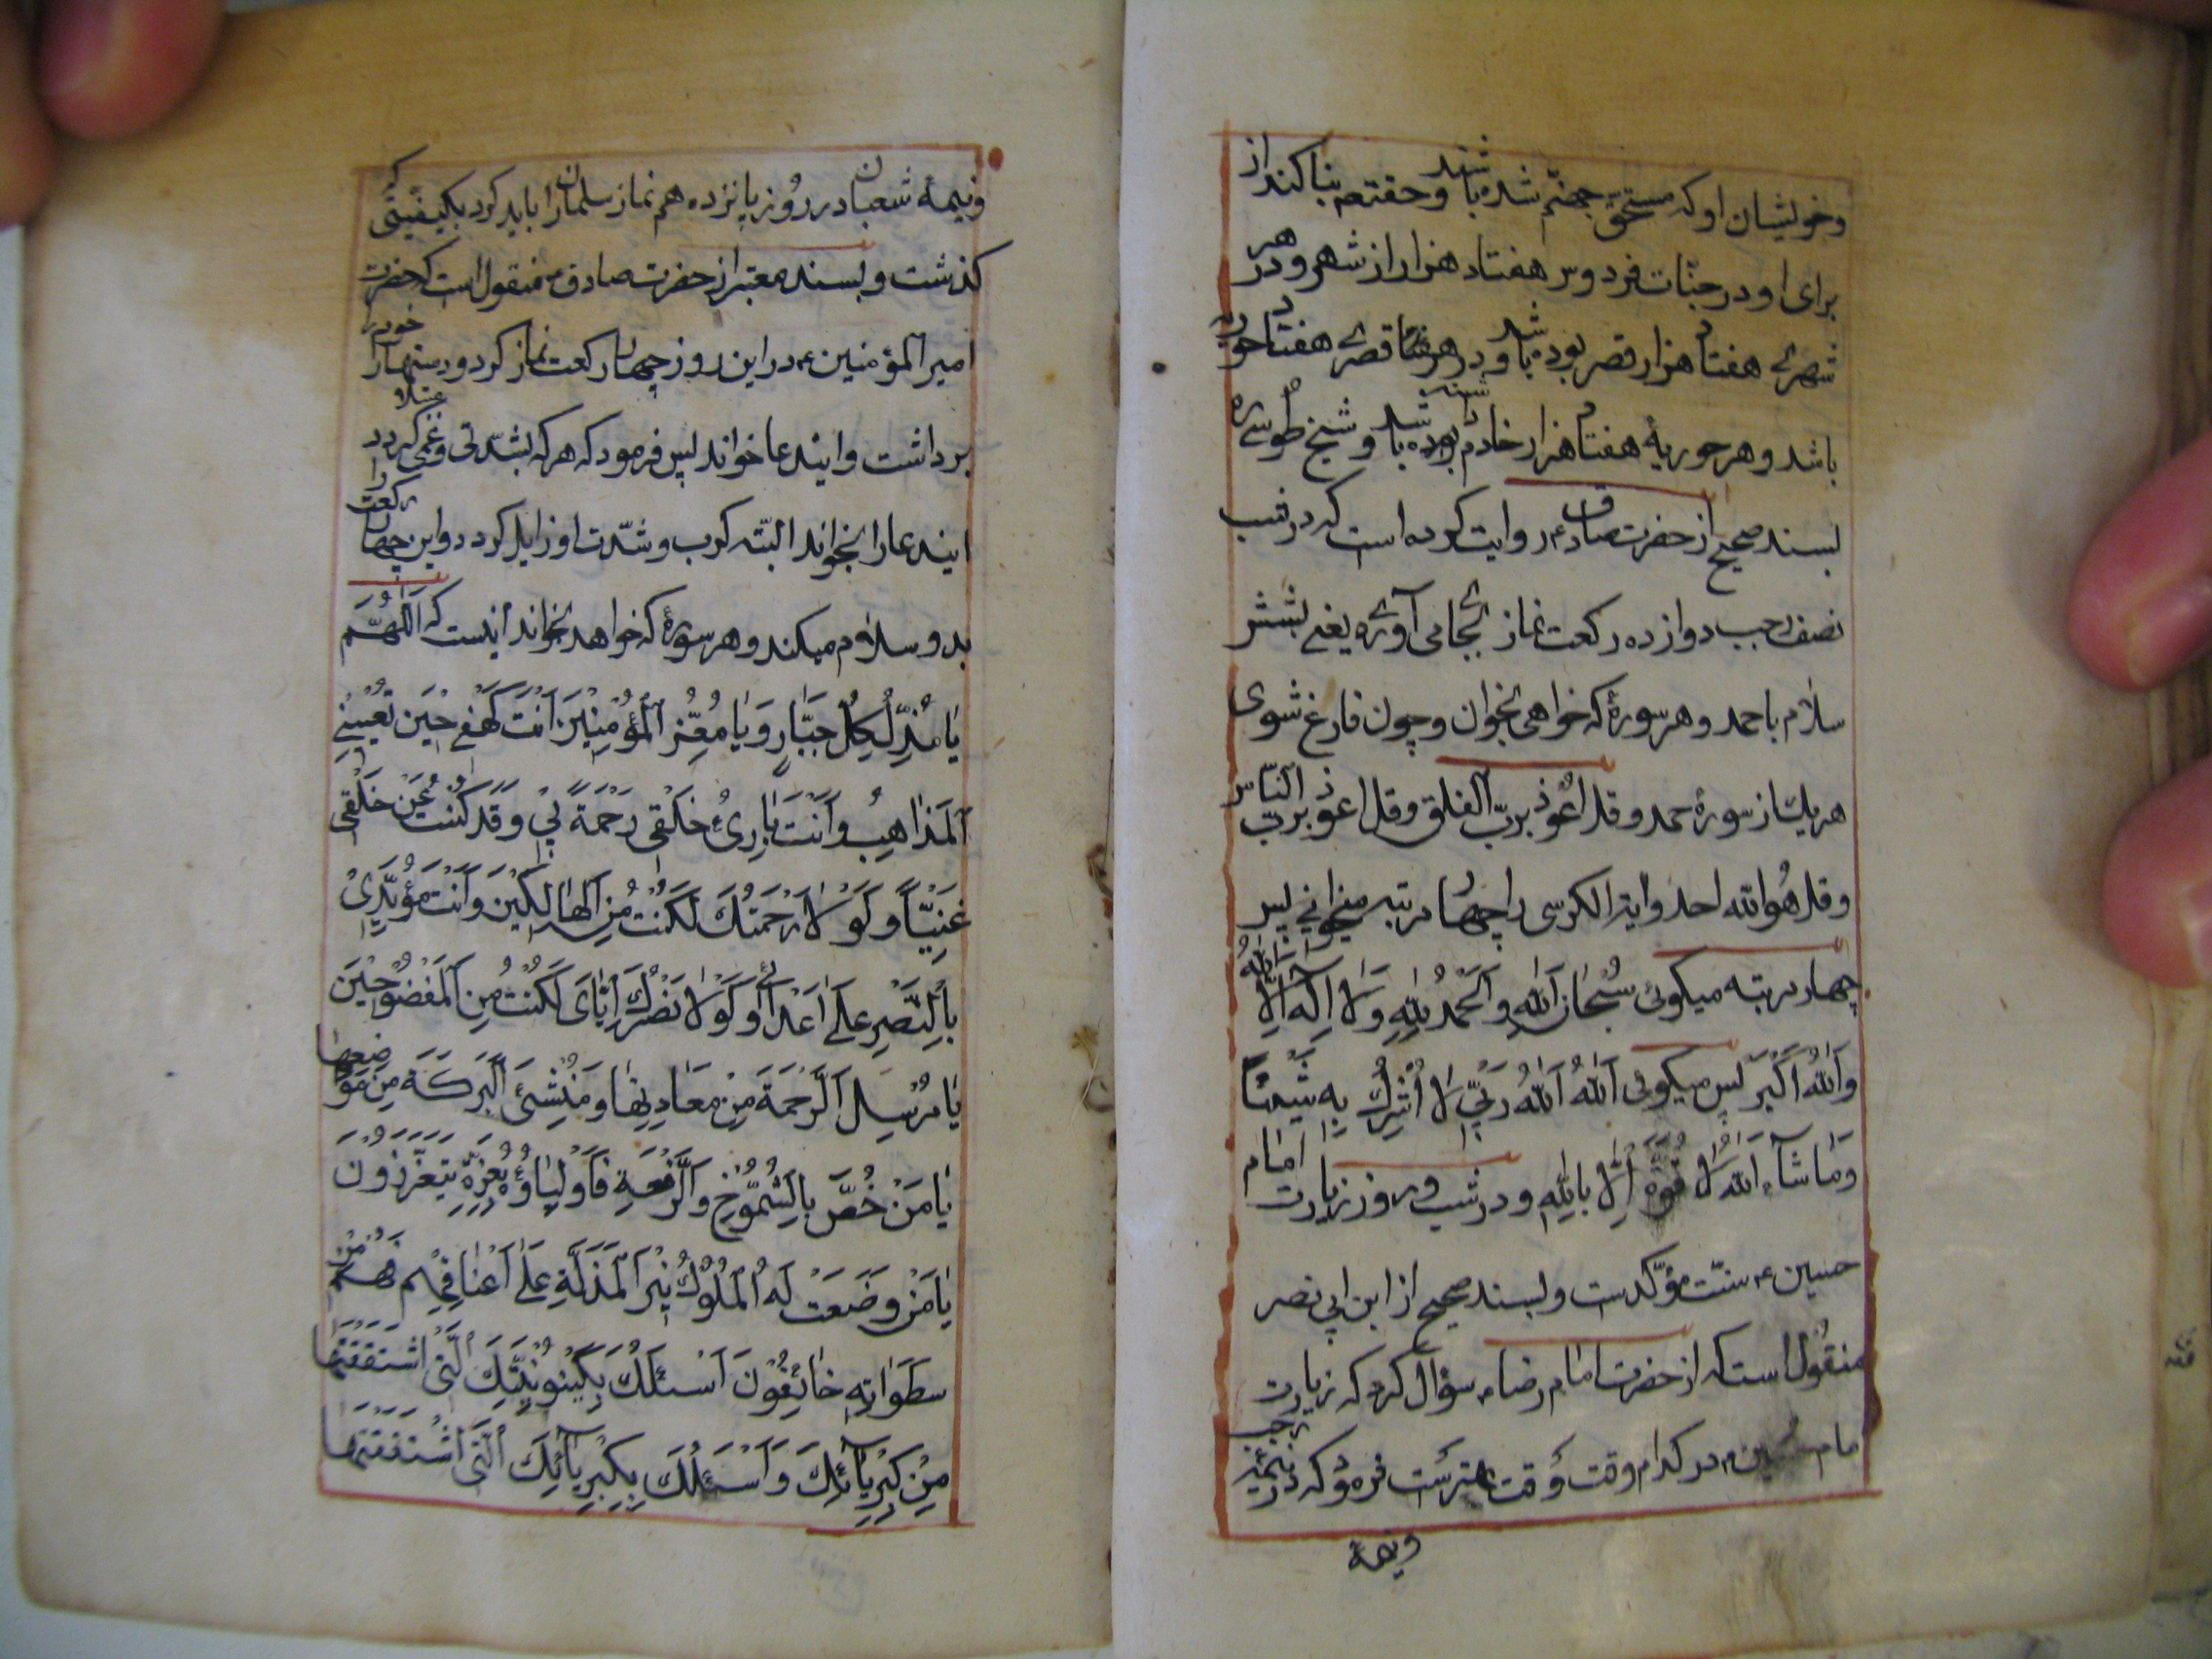 وخویشان او که مستحق جهنّم شده باشند وحقتعم بنا کند از
برای او در جنّات فردوس هفتاد هزار از شهر ودر هر
شهری هفتاد هزار قصر بوده باشد ودر هر قصری هفتاد حوریه
باشد وهر حوریهٔ هفتاد هزار خادم بوده باشد وشیخ طوسی ره
بسند صحیح از حضرت صادق ع روایت کرده است که در شب
نصف رجب دوازده رکعت نماز بجا می آوری یعنی بشش
سلام با حمد وهر سورهٔ که خواهی بخوان وچون فارغ شوی
هر یك از سورهٔ حمد وقل اعوذ بربّ الفلق وقل اعوذ بربّ النّاس
وقل هُو الله احد وایة الکرسی را چهار مرتبه میخوانی پس
چهار مرتبه میکوئی سُبْحَانَ اللهِ وَالْحَمْدُ لِلّٰهِ وَلَا اِلٰهَ اِلَّا اللهُ
وَاللهُ اَکْبَر پس میکوئی اَللهُ اَللهُ رَبِّی لَا اُشْرِكُ بِهِ شَیْئًا
وَمَا شَآءَ اللهُ لَا قُوَّةَ اِلَّا بِاللهِ ودر شب وروز زیارت امام
حسین ع سنّت مؤکّدست وبسند صحیح از ابن ابی نصر
منقول است که از حضرت امام رضا ع سؤال کردم که زیارت
امام حسین ع در کدام وقت بهترست فرمود که در نیمهٔ رجب
ونیمهٔ
ونیمهٔ شعبان در روز پانزدهم هم نماز سلمان را باید کرد بکیفیّتی که
کذشت وبسند معتبر از حضرت صادق ع منقول است که حضرت
امیر المؤمنین ع در این روز چهار رکعت نماز کرد ودستهای خود را
برداشت واین دعا خواند پس فرمود که هر که بشدّتی وغمی مبتلا کردد
این دعا را بخواند البتّه کرب وشدّت او زایل کردد واین چهار رکعت را
بدو سلام میکند وهر سورهٔ که خواهد بخواند اینست که اَللّٰهُمَّ
یَا مُذِلَّ کُلِّ جَبَّارٍ وَیَا مُعِزَّ الْمُؤْمِنِیْنَ اَنْتَ کَهْفِی حِیْنَ تُعْیِیْنِی
اَلْمَذَاهِبُ وَاَنْتَ بَارِئُ خَلْقِی رَحْمَةً بِی وَقَدْ کُنْتَ عَنْ خَلْقِی
غَنِیًّا وَلَوْلَا رَحْمَتُكَ لَکُنْتُ مِنَ الْهَالِکِیْنَ وَاَنْتَ مُؤَیِّدِیْ
بِالنَّصْرِ عَلٰی اَعْدَائِی وَلَوْلَا نَصْرُكَ اِیَّایَ لَکُنْتُ مِنَ الْمَفْضُوْحِیْنَ
یَا مُرْسِلَ الرَّحْمَةِ مِنْ مَعَادِنِهَا وَمُنْشِئَ الْبَرَکَةِ مِنْ مَوَاضِعِهَا
یَا مَنْ خُصَّ بِالشُّمُوْخِ وَالرِّفْعَةِ فَاَوْلِیَاؤُهُ بِعِزِّهِ یَتَعَزَّزُوْنَ
یَا مَنْ وَضَعَتْ لَهُ الْمُلُوْكُ نِیْرَ الْمَذَلَّةِ عَلٰی اَعْنَاقِهِمْ فَهُمْ مِنْ
سَطَوَاتِهِ خَائِفُوْنَ اَسْئَلُكَ بِکَیْنُوْنِیَّتِكَ الَّتِی اشْتَقَقْتَهَا
مِنْ کِبْرِیَائِكَ وَاَسْئَلُكَ بِکِبْرِیَائِكَ الَّتِی اشْتَقَقْتَهَا